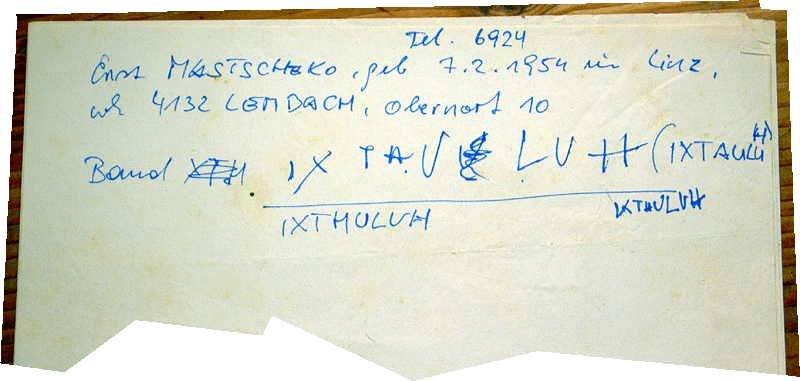 Tel. 6924
Ernst MASTSCHEKO, geb 7.2.1954 in Linz,
wh 4132 LEMBACH, Obernort 10
Band IX TAU LUH (IXTAULU(H)
IXTHULUH IXTHULUH